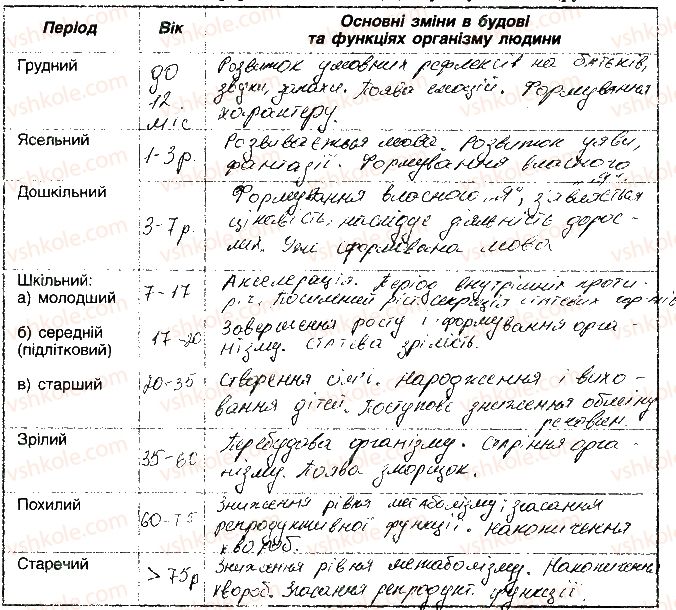 Період Вік Основні зміни в будові
та функціях організму людини
Грудний до 12 міс Розвиток умовних рефлексів на батьків,
звуки, запахи. Поява емоцій. Формування
характеру.
Ясельний 1-3 р. Розвивається мова. Розвиток уяви,
фантазії. Формування власного
"Я".
Дошкільний 3-7 р. Формування власного "Я", з'являється
цікавість, наслідує діяльність дорос-
лих. Уже сформована мова
Шкільний:
а) молодший 7-17 Акселерація. Період внутрішніх проти-
річ. Посилений ріст. Секреція статевих гормонів
б) середній
(підлітковий) 17-20 Завершення росту і формування орга-
нізму. Статева зрілість.
в) старший 20-35 Створення сім'ї. Народження і вихо-
вання дітей. Поступове зниження обміну
речовин.
Зрілий 35-60 Перебудова організму. Старіння орга-
нізму. Поява зморщок.
Похилий 60-75 Зниження рівня метаболізму і згасання
репродуктивної функції. Накопичення
хвороб.
Старечий > 75 р Зниження рівня метаболізму. Накопичення
хвороб. Згасання репродукт. функції
vshkole.com